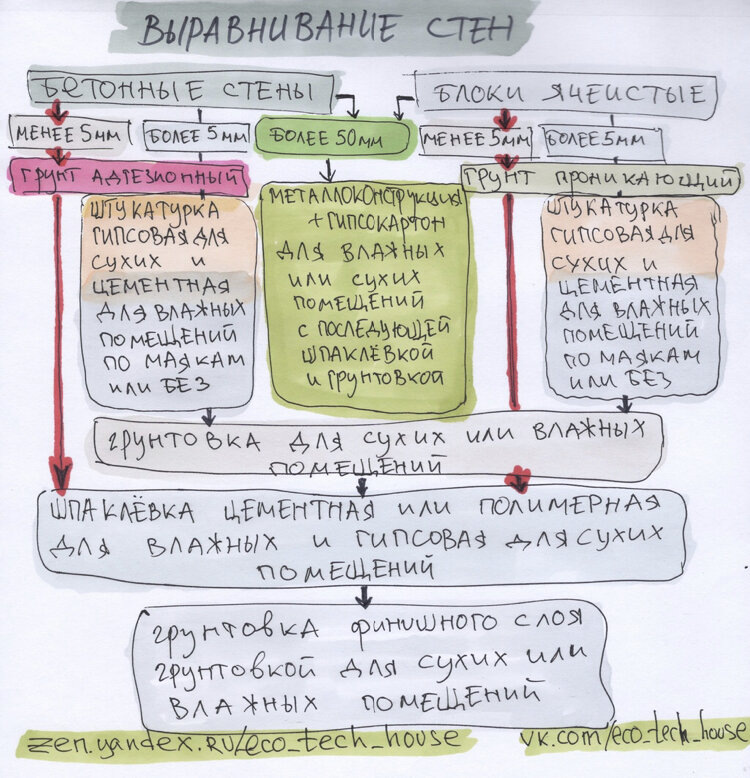 ВЫРАВНИВАНИЕ СТЕН
БЕТОННЫЕ СТЕНЫ
БЛОКИ ЯЧЕИСТЫЕ
МЕНЕЕ 5ММ
БОЛЕЕ 5ММ
БОЛЕЕ 50ММ
МЕНЕЕ 5ММ
БОЛЕЕ 5ММ
ГРУНТ АДГЕЗИОННЫЙ
ГРУНТ ПРОНИКАЮЩИЙ
ШТУКАТУРКА
ГИПСОВАЯ ДЛЯ
СУХИХ И
ЦЕМЕНТНАЯ
ДЛЯ ВЛАЖНЫХ
ПОМЕЩЕНИЙ
ПО МАЯКАМ
ИЛИ БЕЗ
МЕТАЛЛОКОНСТРУКЦИЯ
+ ГИПСОКАРТОН
ДЛЯ ВЛАЖНЫХ
ИЛИ СУХИХ
ПОМЕЩЕНИЙ
С ПОСЛЕДУЮЩЕЙ
ШПАКЛЁВКОЙ
И ГРУНТОВКОЙ
ШТУКАТУРКА
ГИПСОВАЯ ДЛЯ
СУХИХ И
ЦЕМЕНТНАЯ
ДЛЯ ВЛАЖНЫХ
ПОМЕЩЕНИЙ
ПО МАЯКАМ
ИЛИ БЕЗ
ГРУНТОВКА ДЛЯ СУХИХ ИЛИ ВЛАЖНЫХ
ПОМЕЩЕНИЙ
ШПАКЛЁВКА ЦЕМЕНТНАЯ ИЛИ ПОЛИМЕРНАЯ
ДЛЯ ВЛАЖНЫХ И ГИПСОВАЯ ДЛЯ СУХИХ
ПОМЕЩЕНИЙ
ГРУНТОВКА ФИНИШНОГО СЛОЯ
ГРУНТОВКОЙ ДЛЯ СУХИХ ИЛИ
ВЛАЖНЫХ ПОМЕЩЕНИЙ
zen.yandex.ru/eco_tech_house
vk.com/eco_tech_house